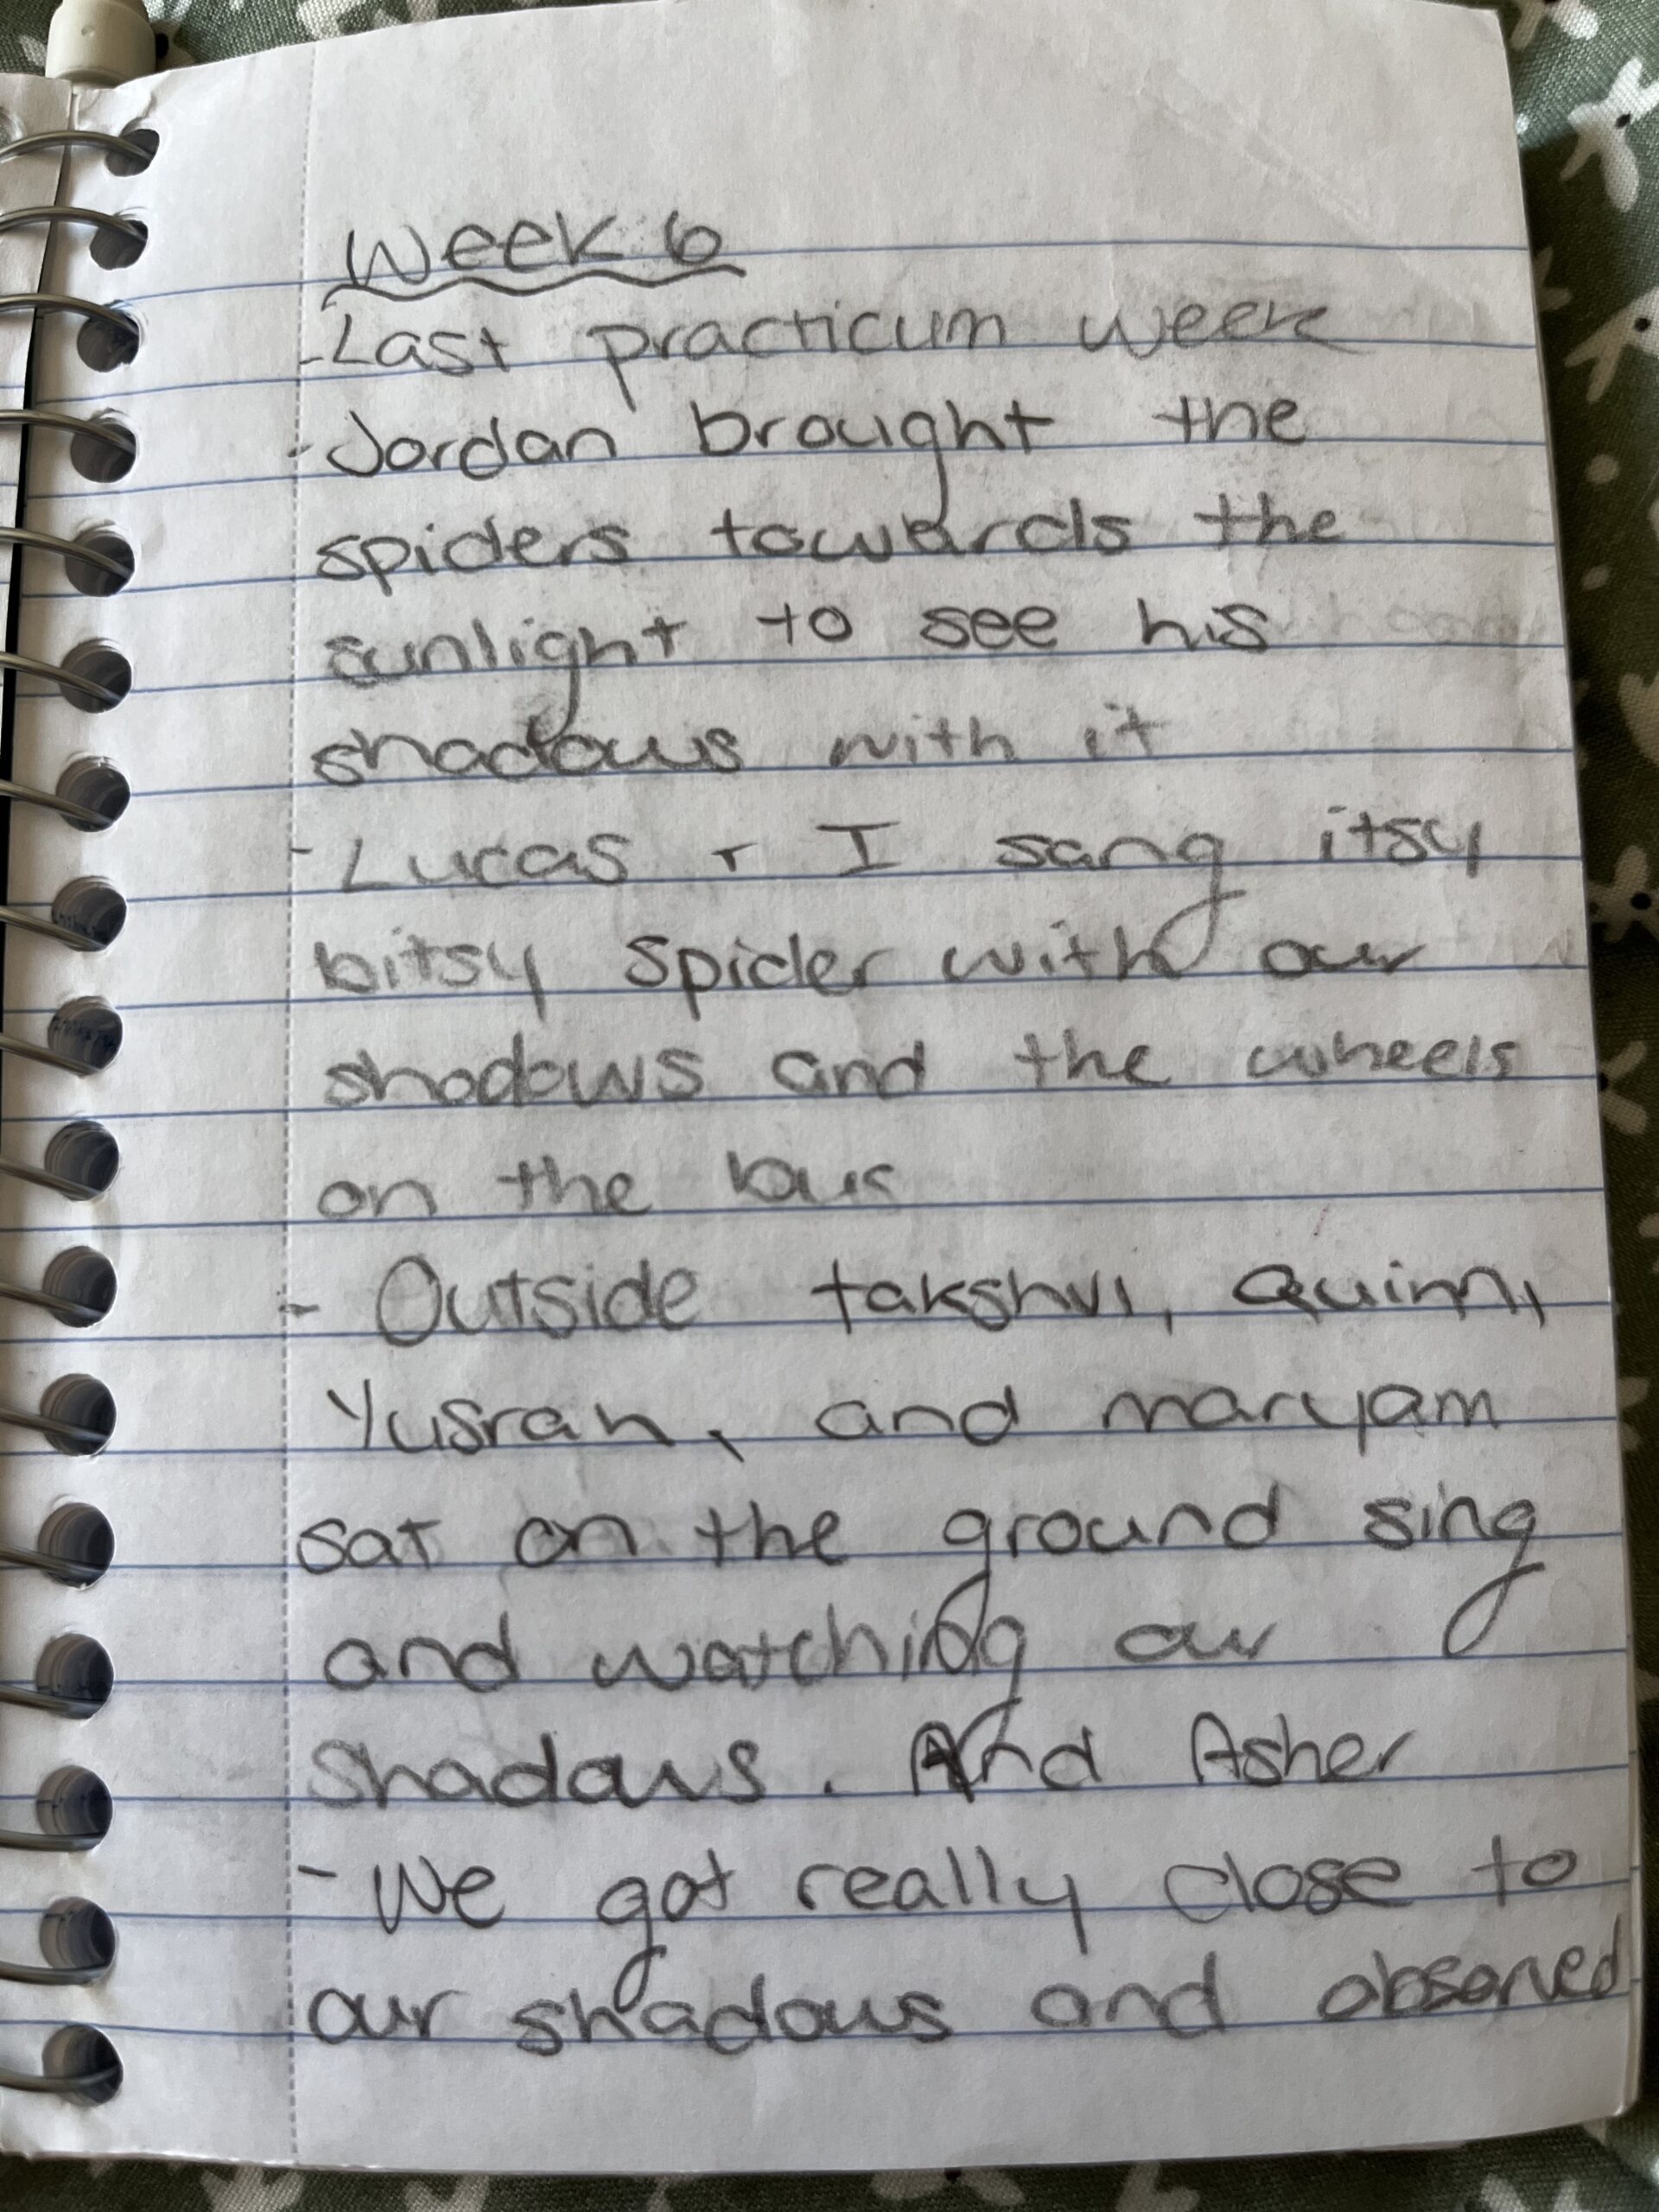 Week 6
-Last practicum week
-Jordan brought the
spiders towards the
sunlight to see his
shadows with it
-Lucas + I sang itsy
bitsy spider with our
shadows and the wheels
on the bus
- Outside takshvi, Quinn,
Yusrah, and maryam
sat on the ground sing
and watching our
Shadows. And Asher
- We got really close to
our shadows and observed